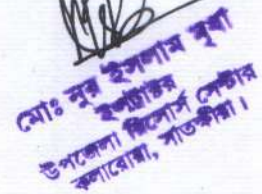 মোঃ নুর ইসলাম মৃধা
ইন্সট্রাক্টর
উপজেলা রিসোর্স সেন্টার
কলারোয়া, সাতক্ষীরা।